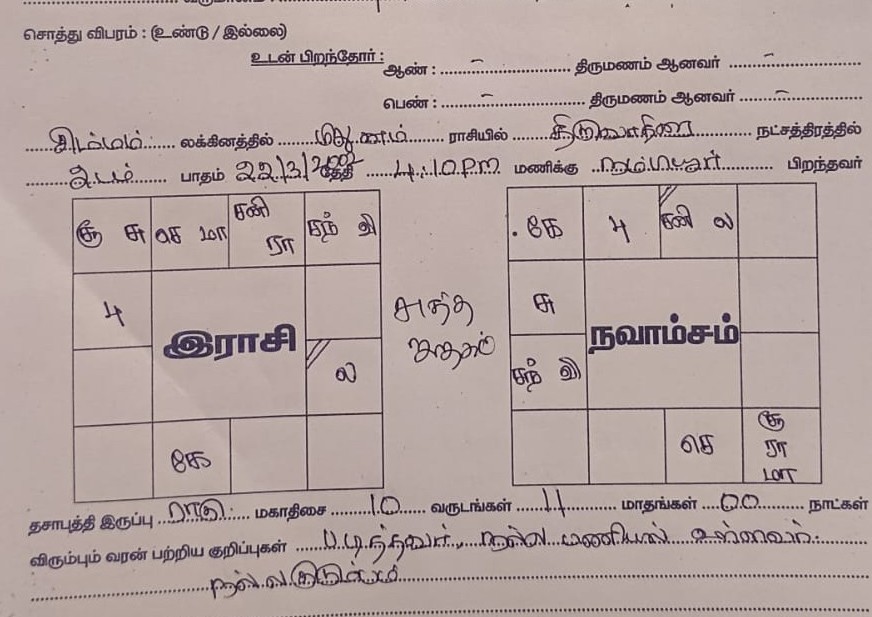 சொத்து விபரம் : (உண்டு / இல்லை)
உடன் பிறந்தோர் :
ஆண் : ..... – ..... திருமணம் ஆனவர் ..... – .....
பெண் : ..... – ..... திருமணம் ஆனவர் ..... – .....
சிம்மம் லக்கினத்தில் மிதுனம் ராசியில் திருவாதிரை நட்சத்திரத்தில்
2ம் பாதம் 22/3/2002 தேதி 4.10 P.m மணிக்கு பிறந்தவர்
சூ சு செ மா சனி ரா சந் வி
. கே 4 சனி ல
4 இராசி சுத்த ஜாதகம்
சு நவாம்சம்
ல
சந் வி
கே
செ சூ ரா மா
தசாபுத்தி இருப்பு ராகு மகாதிசை 10 வருடங்கள் 11 மாதங்கள் 00 நாட்கள்
விரும்பும் வரன் பற்றிய குறிப்புகள் படித்தவர், நல்ல பணியில் உள்ளவர்.
நல்ல குடும்பம்